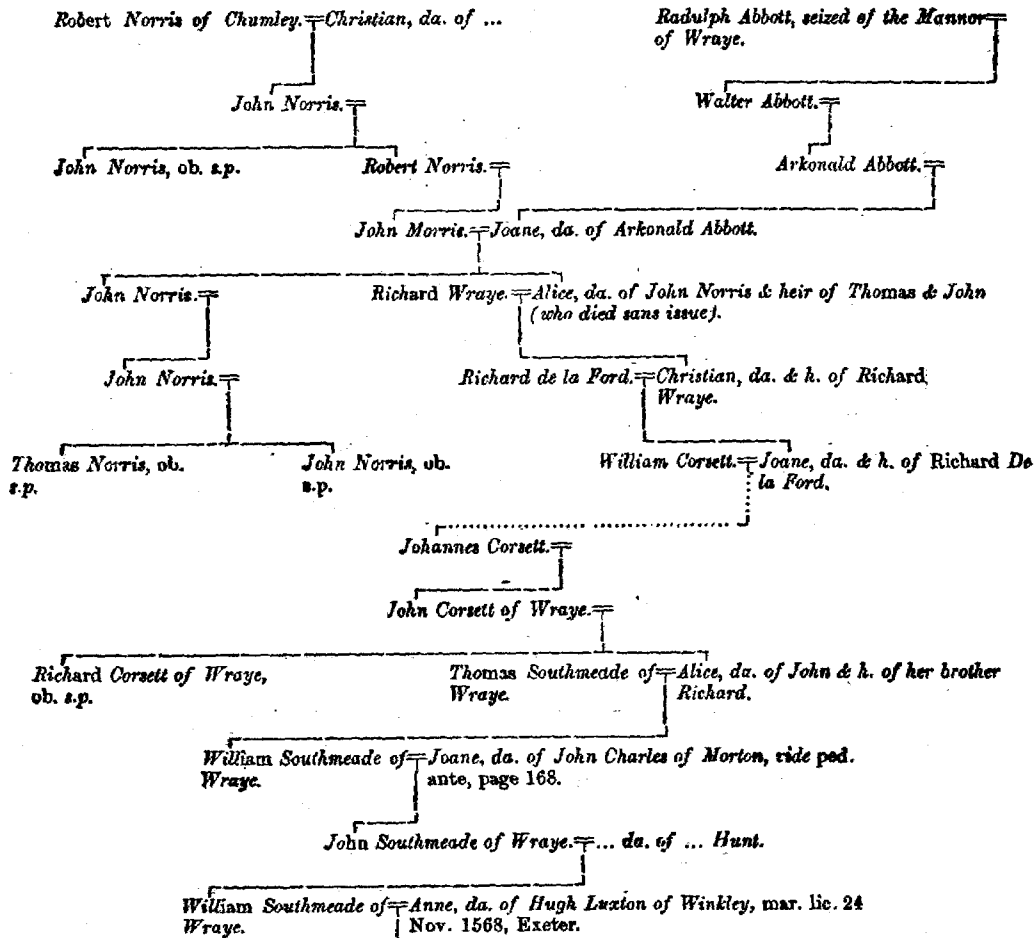 Robert Norris of Chumley.=Christian, da. of ...
Radulph Abbott, seized of the Mannor=
of Wraye.
John Norris.=
Walter Abbott.=
John Norris, ob. s.p.
Robert Norris.=
Arkonald Abbott.=
John Morris.=Joane, da. of Arkonald Abbott.
John Norris.=
Richard Wraye.=Alice, da. of John Norris & heir of Thomas & John
(who died sans issue).
John Norris.=
Richard de la Ford.=Christian, da. & h. of Richard
Wraye.
Thomas Norris, ob.
s.p.
John Norris, ob.
s.p.
William Corsett.=Joane, da. & h. of Richard De
la Ford.
Johannes Corsett.=
John Corsett of Wraye.=
Richard Corsett of Wraye,
ob. s.p.
Thomas Southmeade of=Alice, da. of John & h. of her brother
Wraye. Richard.
William Southmeade of=Joane, da. of John Charles of Morton, vide ped.
Wraye. ante, page 168.
John Southmeade of Wraye.=... da. of ... Hunt.
William Southmeade of=Anne, da. of Hugh Luxton of Winkley, mar. lic. 24
Wraye. Nov. 1568, Exeter.